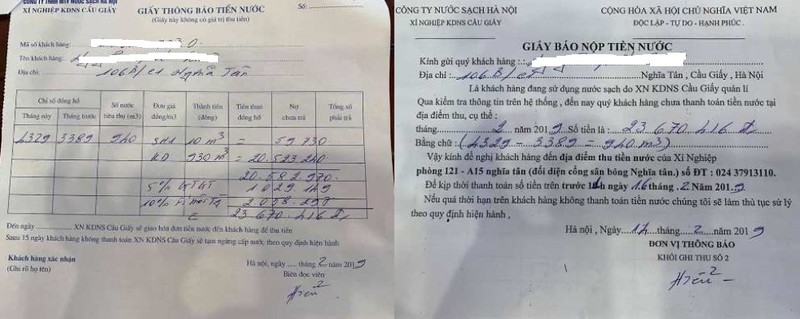 CÔNG TY TNHH MTV NƯỚC SẠCH HÀ NỘI
XÍ NGHIỆP KDNS CẦU GIẤY
GIẤY THÔNG BÁO TIỀN NƯỚC
(Giấy này không có giá trị thu tiền)
Số:
Mã số khách hàng:
Tên khách hàng:
Địa chỉ: 106B/C1 Nghĩa Tân
Chỉ số đồng hồ Số nước tiêu thụ (m3) Đơn giá đồng/m3 Thành tiền (đồng) Tiền thuê đồng hồ Nợ chưa trả Tổng số phải trả
Tháng này Tháng trước
4329 3389 940 SH1 10 m3 = 59 730
KD 930 m3 = 20.523 240
20.582 970
5% GTGT 1 029 149
10% 2 058 298
23 670.416 đ
Đến ngày ........ XN KDNS Cầu Giấy sẽ giao hóa đơn tiền nước đến khách hàng để thu tiền
Saau 15 ngày khách hàng không thanh toán XN KDNS Cầu Giấy sẽ tạm ngừng cấp nước, theo quy định hiện hành
Khách hàng xác nhận
(Ghi rõ họ tên)
Hà nội, ngày ..... tháng 2 năm 2019
Biên đọc viên
Hiền 2
CÔNG TY NƯỚC SẠCH HÀ NỘI
XÍ NGHIỆP KDNS CẦU GIẤY
CỘNG HÒA XÃ HỘI CHỦ NGHĨA VIỆT NAM
ĐỘC LẬP - TỰ DO - HẠNH PHÚC .
GIẤY BÁO NỘP TIỀN NƯỚC
Kính gửi quý khách hàng :
Địa chỉ : 106.B/C1 Nghĩa Tân , Cầu Giấy , Hà Nội
Là khách hàng đang sử dụng nước sạch do XN KDNS Cầu Giấy quản lí
Qua kiểm tra thông tin trên hệ thống , đến nay quý khách hàng chưa thanh toán tiền nước tại
địa điểm thu, cụ thể :
tháng 2 năm 2019 Số tiền là : 23 670 416 đ
Bằng chữ : (4329 - 3389 = 940 m3)
Vậy kính đề nghị khách hàng đến địa điểm thu tiền nước của Xí Nghiệp
phòng 121 - A15 nghĩa tân (đối diện cổng sân bóng Nghĩa Tân.) số ĐT : 024 37913110.
Để kịp thời thanh toán số tiền trên trước 11h ngày 16 tháng 2 Năm 2019
Nếu quá thời hạn trên khách hàng không thanh toán tiền nước chúng tôi sẽ làm thủ tục sử lý
theo quy định hiện hành .
Hà nội , Ngày 14 tháng 2 năm 2019
ĐƠN VỊ THÔNG BÁO
KHỐI GHI THU SỐ 2
Hiền 2